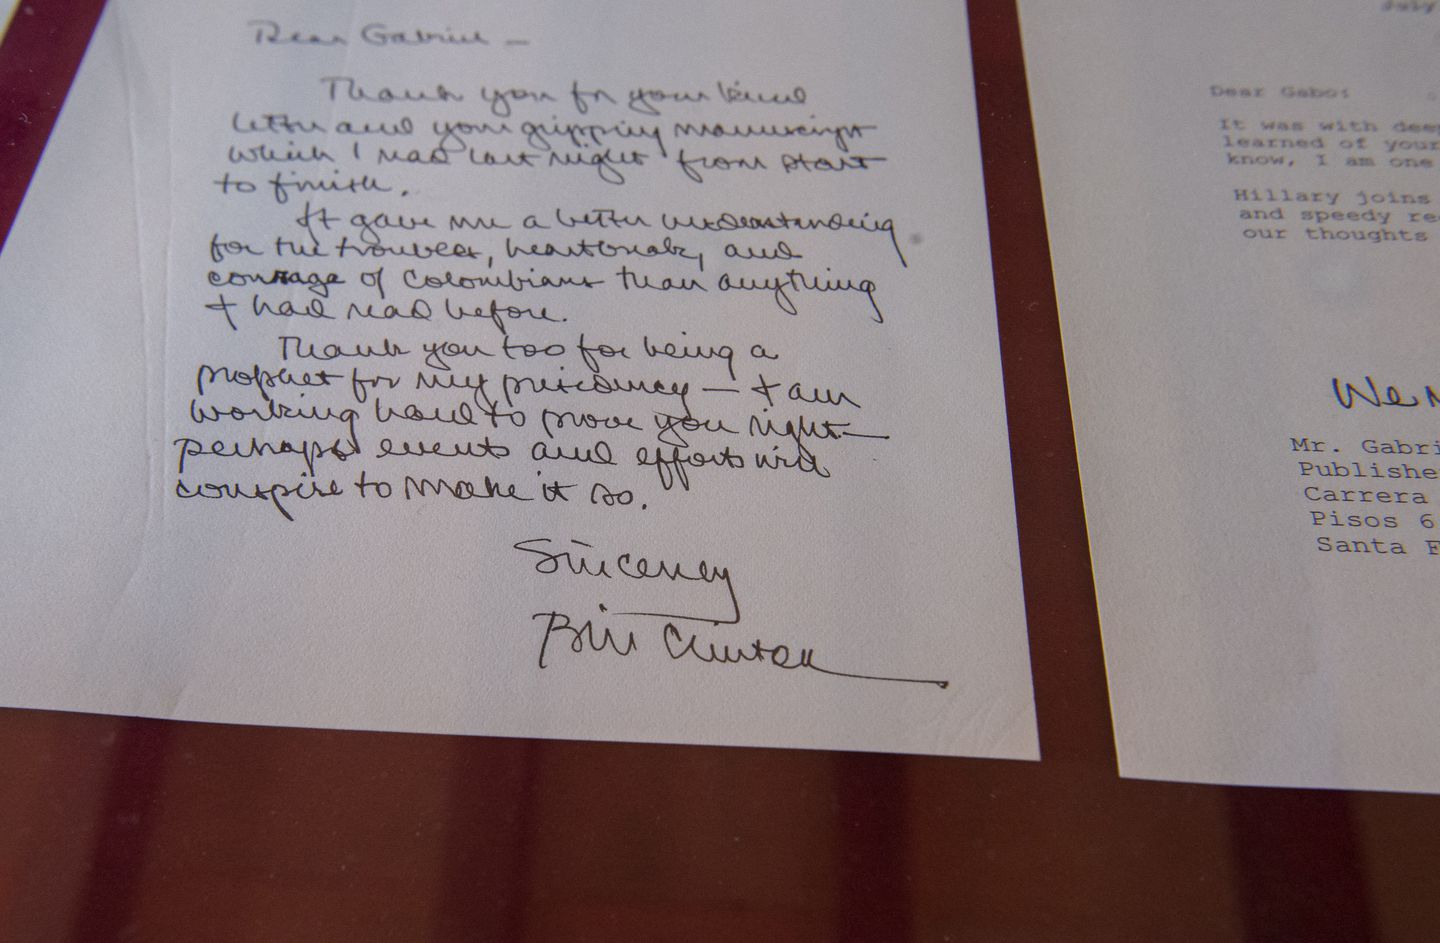 Dear Gabriel —
Thank you for your kind
letter and your gripping manuscript
which I read last night from start
to finish.
It gave me a better understanding
for the troubles, heartbreak, and
courage of Colombians than anything
I had read before.
Thank you too for being a
prophet for my presidency — I am
working hard to prove you right —
perhaps events and efforts will
conspire to make it so.
Sincerely
Bill Clinton
July
Dear Gabo:
It was with deep
learned of your
know, I am one
Hillary joins
and speedy re
our thoughts
We
Mr. Gabri
Publishe
Carrera
Pisos 6
Santa F